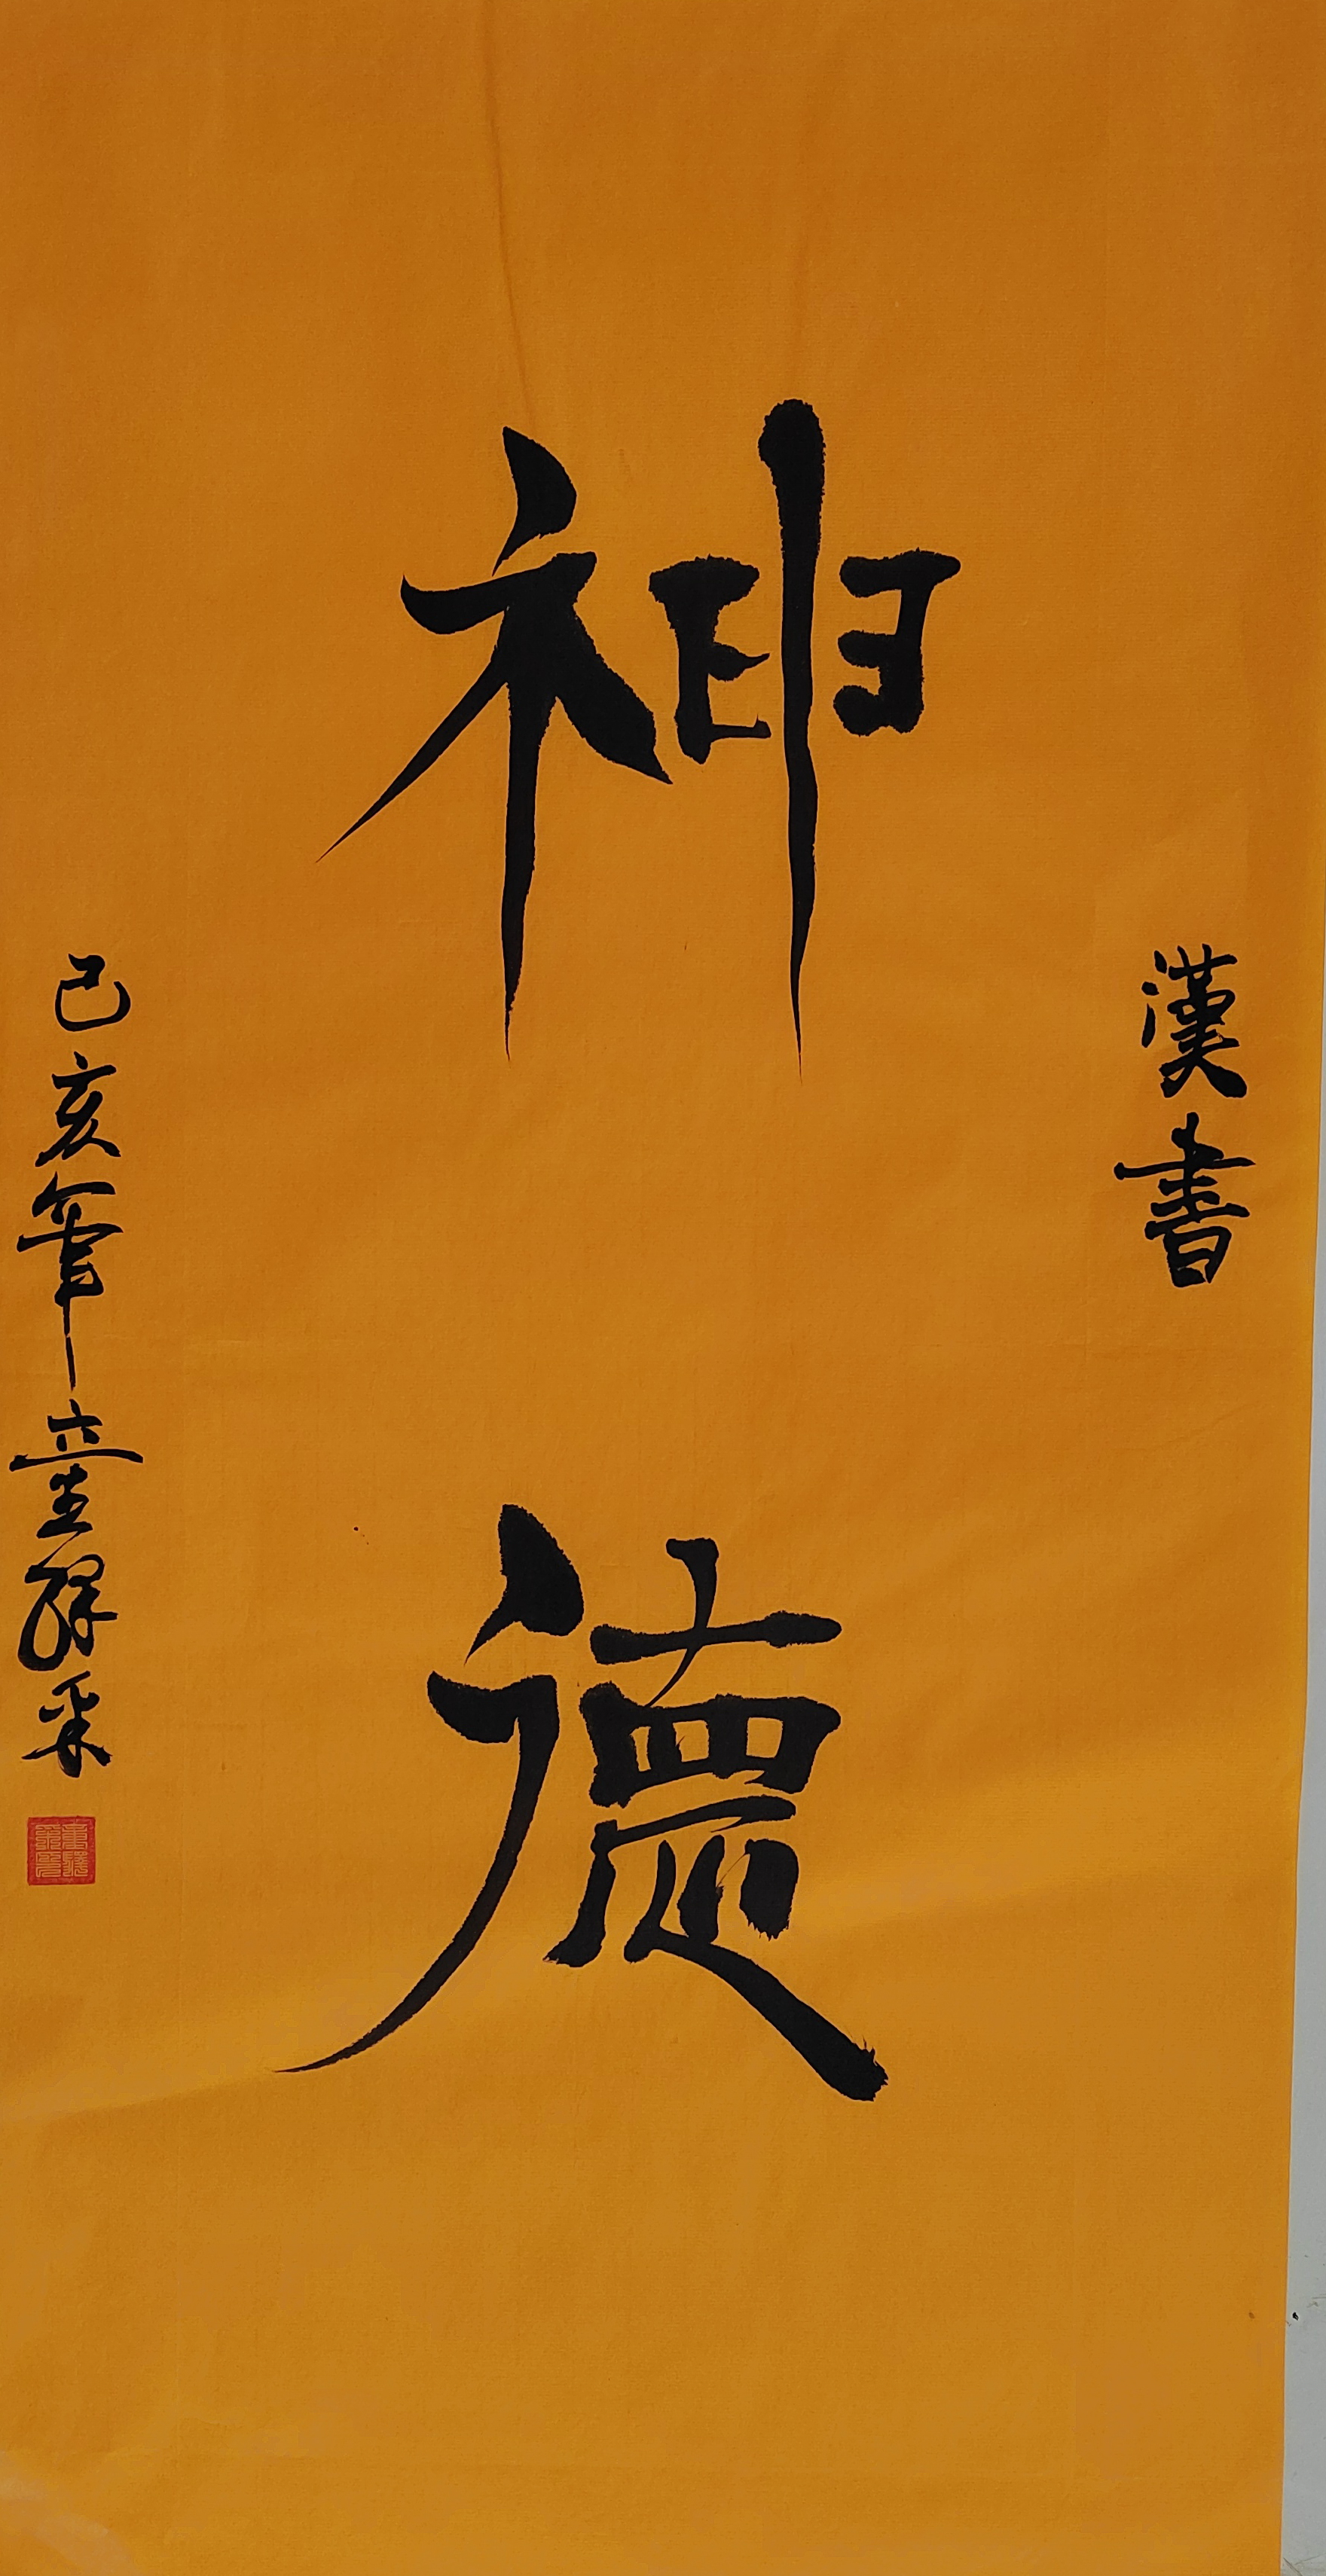 漢書
神德
己亥年